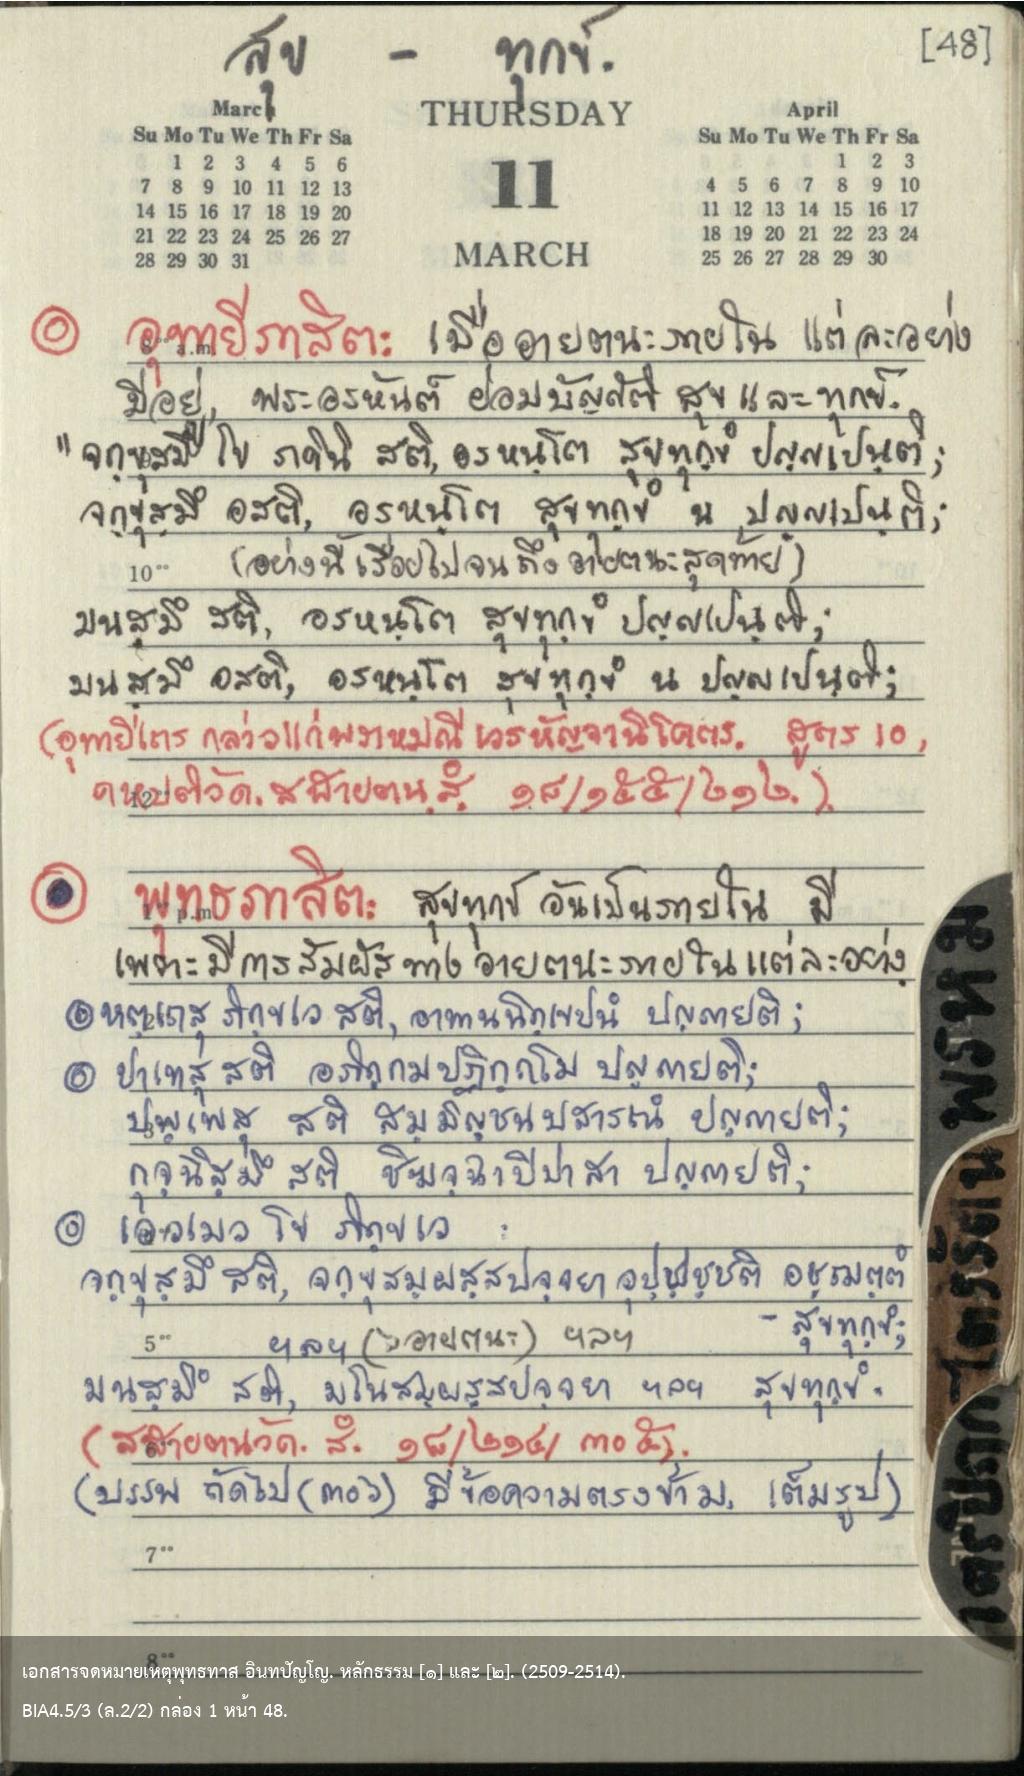 สุข - ทุกข์.
[48]
March
Su Mo Tu We Th Fr Sa
1 2 3 4 5 6
7 8 9 10 11 12 13
14 15 16 17 18 19 20
21 22 23 24 25 26 27
28 29 30 31
THURSDAY
11
MARCH
April
Su Mo Tu We Th Fr Sa
1 2 3
4 5 6 7 8 9 10
11 12 13 14 15 16 17
18 19 20 21 22 23 24
25 26 27 28 29 30
อุทายีภาสิต: เมื่ออายตนะภายใน แต่ละอย่าง
มีอยู่, พระอรหันต์ ย่อมบัญญัติ สุข และ ทุกข์.
"จกฺขุสฺมึ โข ภคินิ สติ, อรหนฺโต สุขทุกฺขํ ปญฺญเปนฺติ;
จกฺขุสฺมึ อสติ, อรหนฺโต สุขทุกฺขํ น ปญฺญเปนฺติ;
10°° (อย่างนี้เรื่อยไปจนถึง อายตนะสุดท้าย)
มนสฺมึ สติ, อรหนฺโต สุขทุกฺขํ ปญฺญเปนฺติ;
มนสฺมึ อสติ, อรหนฺโต สุขทุกฺขํ น ปญฺญเปนฺติ;
(อุทายีเถร กล่าวแก่พราหมณี เวรหัญจานิโคตร. สูตร 10,
คหปติวัค. สฬายตน. สํ. ๑๘/๑๕๕/๒๑๒.).
พุทธภาสิต: สุขทุกข์ อันเป็นภายใน มี
เพราะมีการสัมผัสทางอายตนะภายในแต่ละอย่าง
หตฺเถสุ ภิกฺขเว สติ, อาทานนิกฺเขปนํ ปญฺญายติ;
ปาเทสุ สติ อภิกฺกมปฏิกฺกโม ปญฺญายติ;
ปพฺเพสุ สติ สมฺมิญฺชนปสารณํ ปญฺญายติ;
กุจฺฉิสฺมึ สติ ชิฆจฺฉาปิปาสา ปญฺญายติ;
เอวเมว โข ภิกฺขเว :
จกฺขุสฺมึ สติ, จกฺขุสมฺผสฺสปจฺจยา อุปฺปชฺชติ อชฺฌตฺตํ
- สุขทุกฺขํ;
5°° ฯลฯ (๖ อายตนะ) ฯลฯ
มนสฺมึ สติ, มโนสมฺผสฺสปจฺจยา ฯลฯ สุขทุกฺขํ.
(สฬายตนวัค. สํ. ๑๘/๒๑๔/๓๐๕).
(บรรพ ถัดไป (๓๐๖) มีข้อความตรงข้าม, เต็มรูป)
7°°
8°°
พรหม
ไตรรัตน
ไตรปิฎก
เอกสารจดหมายเหตุพุทธทาส อินทปัญโญ. หลักธรรม [๑] และ [๒]. (2509-2514).
BIA4.5/3 (ล.2/2) กล่อง 1 หน้า 48.